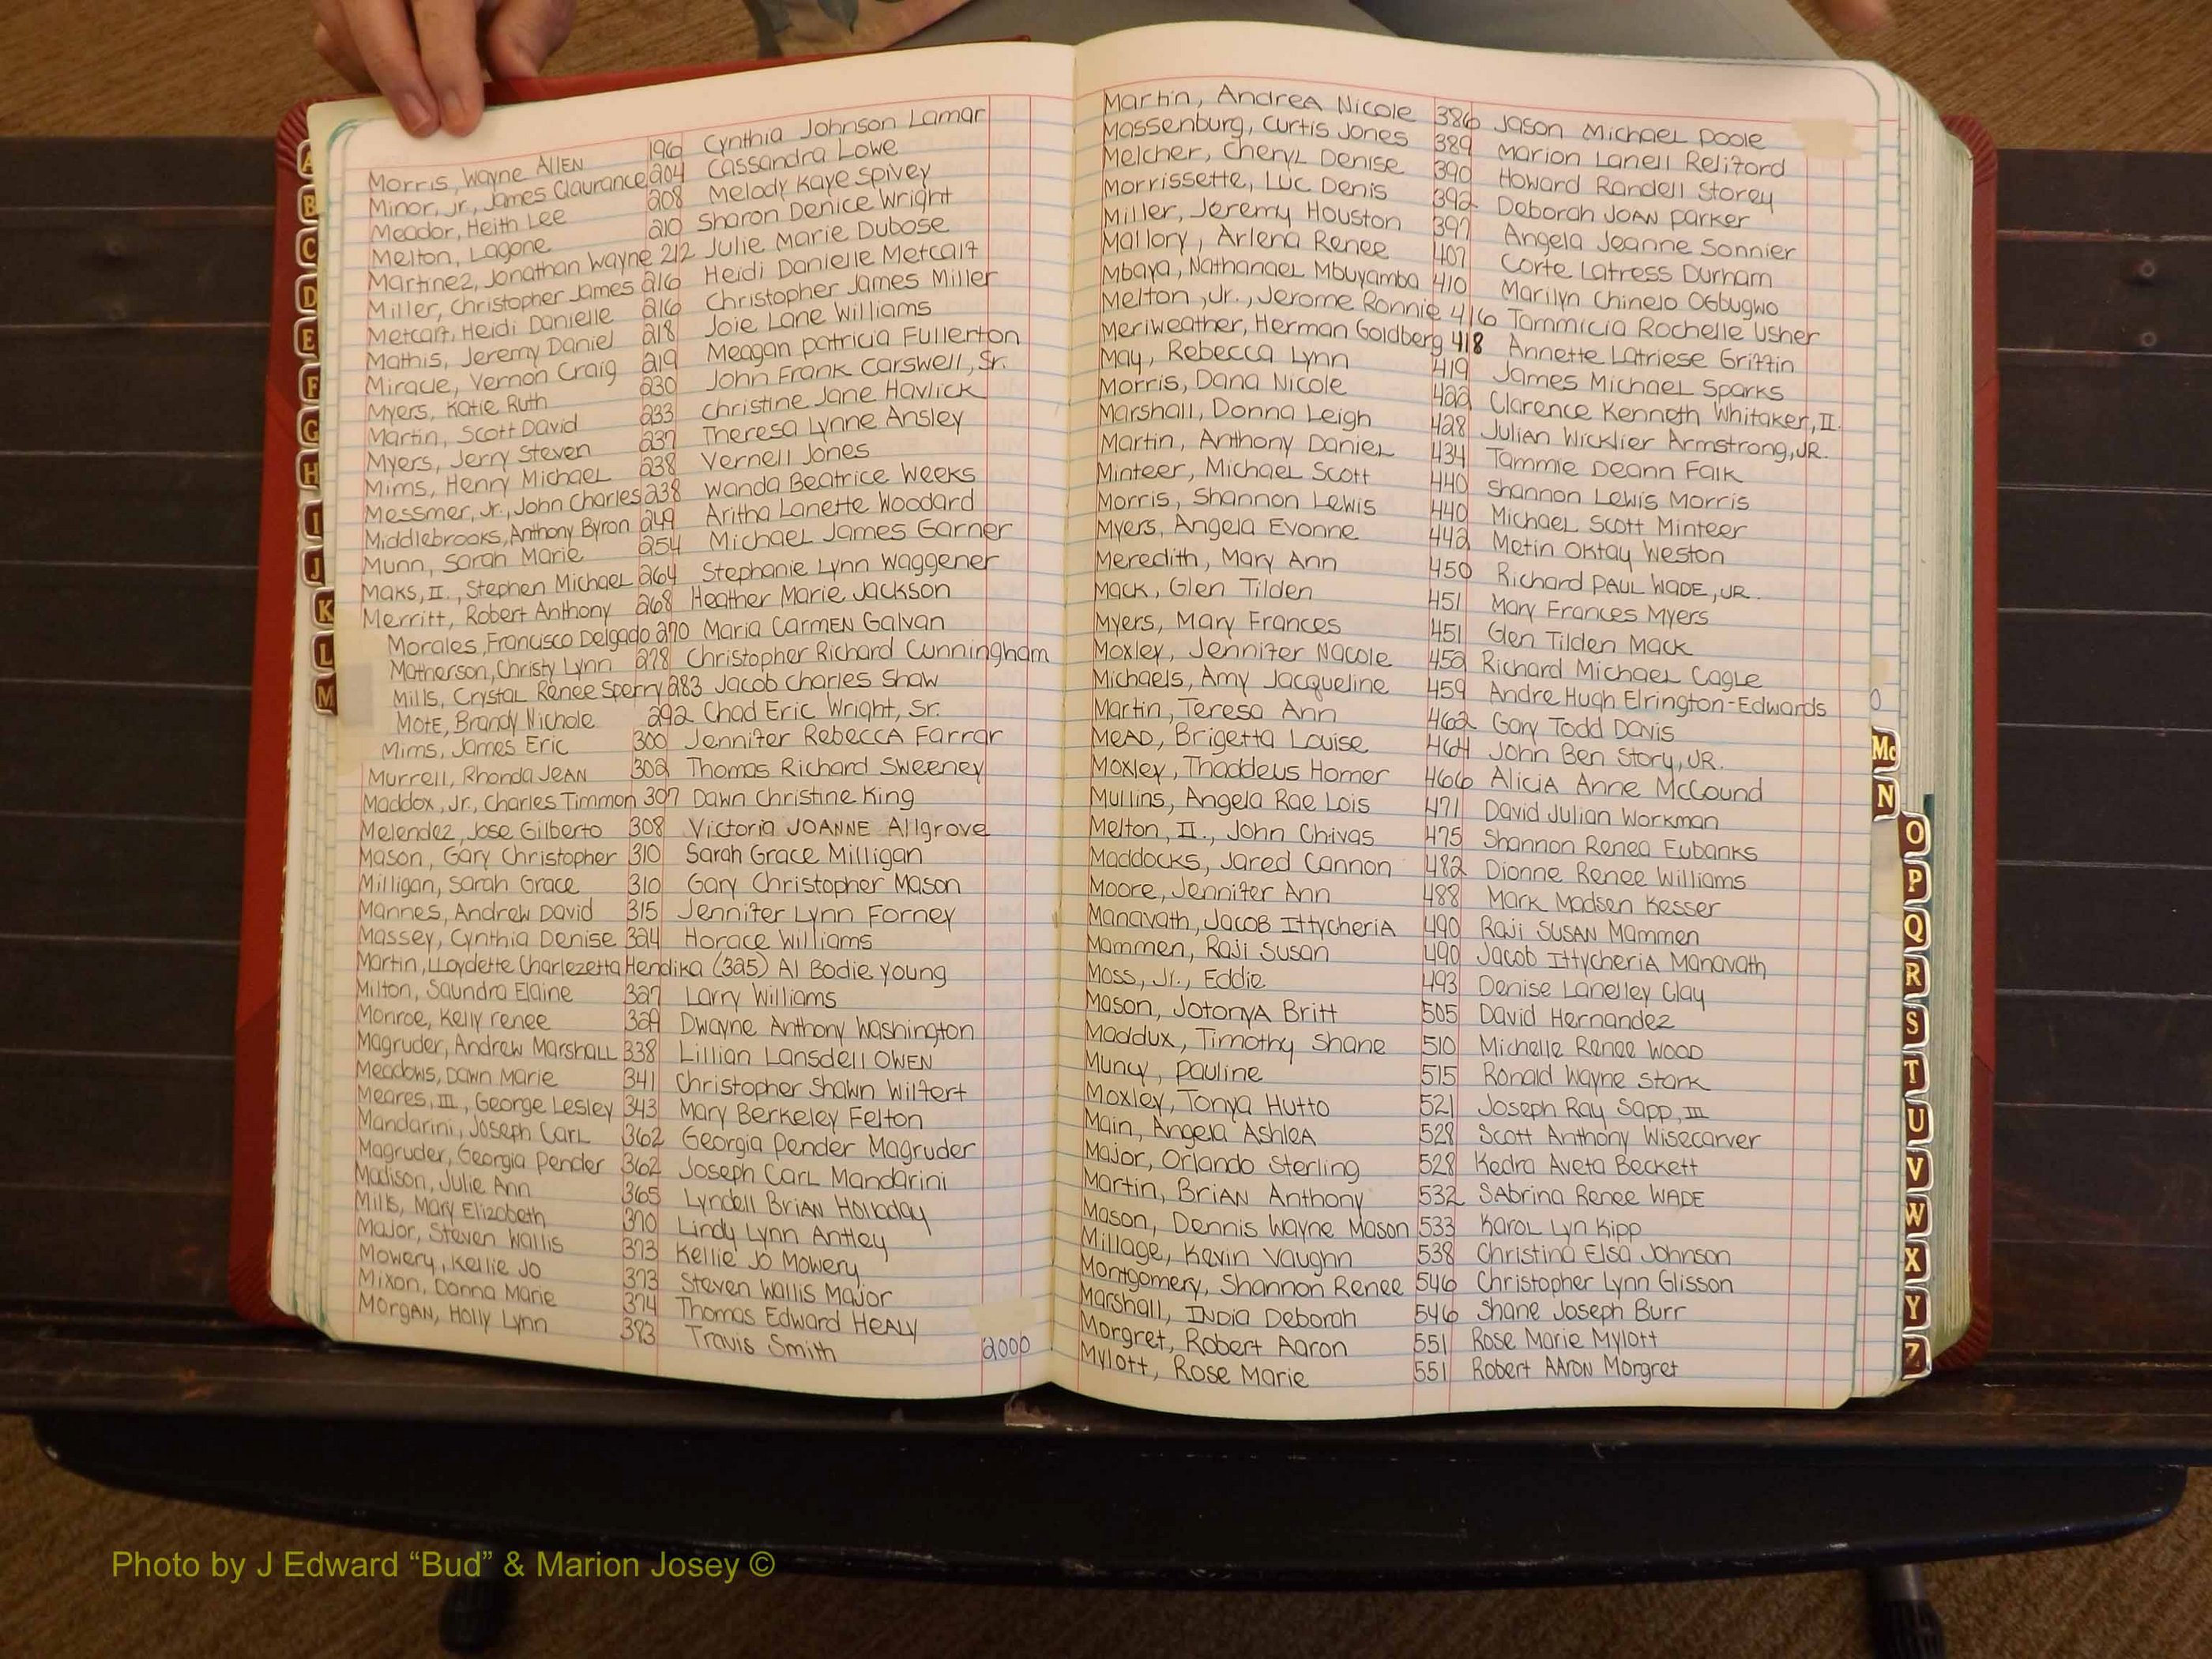 A
B
C
D
E
F
G
H
I
J
K
L
M
Morris, Wayne Allen 196 Cynthia Johnson Lamar
Minor, Jr., James Claurance 204 Cassandra Lowe
Meador, Heith Lee 208 Melody Kaye Spivey
Melton, Lagone 210 Sharon Denice Wright
Martinez, Jonathan Wayne 212 Julie Marie Dubose
Miller, Christopher James 216 Heidi Danielle Metcalf
Metcalf, Heidi Danielle 216 Christopher James Miller
Mathis, Jeremy Daniel 218 Joie Lane Williams
Miracle, Vernon Craig 219 Meagan Patricia Fullerton
Myers, Katie Ruth 230 John Frank Carswell, Sr.
Martin, Scott David 233 Christine Jane Havlick
Myers, Jerry Steven 237 Theresa Lynne Ansley
Mims, Henry Michael 238 Vernell Jones
Messmer, Jr., John Charles 238 Wanda Beatrice Weeks
Middlebrooks, Anthony Byron 249 Aritha Lanette Woodard
Munn, Sarah Marie 254 Michael James Garner
Maks, II., Stephen Michael 264 Stephanie Lynn Waggener
Merritt, Robert Anthony 268 Heather Marie Jackson
Morales, Francisco Delgado 270 Maria Carmen Galvan
Matherson, Christy Lynn 278 Christopher Richard Cunningham
Mills, Crystal Renee Sperry 283 Jacob Charles Shaw
Mote, Brandy Nichole 292 Chad Eric Wright, Sr.
Mims, James Eric 300 Jennifer Rebecca Farrar
Murrell, Rhonda Jean 302 Thomas Richard Sweeney
Maddox, Jr., Charles Timmon 307 Dawn Christine King
Melendez, Jose Gilberto 308 Victoria Joanne Allgrove
Mason, Gary Christopher 310 Sarah Grace Milligan
Milligan, Sarah Grace 310 Gary Christopher Mason
Mannes, Andrew David 315 Jennifer Lynn Forney
Massey, Cynthia Denise 324 Horace Williams
Martin, Lloydette Charlezetta Hendika (325) Al Bodie Young
Milton, Saundra Elaine 327 Larry Williams
Monroe, Kelly renee 329 Dwayne Anthony Washington
Magruder, Andrew Marshall 338 Lillian Lansdell Owen
Meadows, Dawn Marie 341 Christopher Shawn Wilfert
Meares, III, George Lesley 343 Mary Berkeley Felton
Mandarini, Joseph Carl 362 Georgia Pender Magruder
Magruder, Georgia Pender 362 Joseph Carl Mandarini
Madison, Julie Ann 365 Lyndell Brian Holladay
Mills, Mary Elizabeth 370 Lindy Lynn Antley
Major, Steven Wallis 373 Kellie Jo Mowery
Mowery, Kellie Jo 373 Steven Wallis Major
Mixon, Donna Marie 374 Thomas Edward Healy
Morgan, Holly Lynn 383 Travis Smith
2000
Martin, Andrea Nicole 386 Jason Michael Poole
Massenburg, Curtis Jones 389 Marion Lanell Reliford
Melcher, Cheryl Denise 390 Howard Randell Storey
Morrissette, Luc Denis 392 Deborah Joan Parker
Miller, Jeremy Houston 397 Angela Jeanne Sonnier
Mallory, Arlena Renee 407 Corte Latress Durham
Mbaya, Nathanael Mbuyamba 410 Marilyn Chinelo Ogbugwo
Melton, Jr., Jerome Ronnie 416 Tammicia Rochelle Usher
Meriweather, Herman Goldberg 418 Annette Latriese Griffin
May, Rebecca Lynn 419 James Michael Sparks
Morris, Dana Nicole 422 Clarence Kenneth Whitaker, II.
Marshall, Donna Leigh 428 Julian Wicklier Armstrong, JR.
Martin, Anthony Daniel 434 Tammie Deann Falk
Minteer, Michael Scott 440 Shannon Lewis Morris
Morris, Shannon Lewis 440 Michael Scott Minteer
Myers, Angela Evonne 442 Metin Oktay Weston
Meredith, Mary Ann 450 Richard Paul Wade, JR.
Mack, Glen Tilden 451 Mary Frances Myers
Myers, Mary Frances 451 Glen Tilden Mack
Moxley, Jennifer Nacole 452 Richard Michael Cagle
Michaels, Amy Jacqueline 459 Andre Hugh Elrington-Edwards
Martin, Teresa Ann 462 Gary Todd Davis
Mead, Brigetta Louise 464 John Ben Story, JR.
Moxley, Thaddeus Homer 466 Alicia Anne McCound
Mullins, Angela Rae Lois 471 David Julian Workman
Melton, II., John Chivas 475 Shannon Renea Eubanks
Maddocks, Jared Cannon 482 Dionne Renee Williams
Moore, Jennifer Ann 488 Mark Madsen Kesser
Manavath, Jacob Ittycheria 490 Raji Susan Mammen
Mammen, Raji Susan 490 Jacob Ittycheria Manavath
Moss, Jr., Eddie 493 Denise Lanelley Clay
Mason, Jotonya Britt 505 David Hernandez
Maddux, Timothy Shane 510 Michelle Renee Wood
Muncy, Pauline 515 Ronald Wayne Stark
Moxley, Tonya Hutto 521 Joseph Ray Sapp, III
Main, Angela Ashlea 528 Scott Anthony Wisecarver
Major, Orlando Sterling 528 Kedra Aveta Beckett
Martin, Brian Anthony 532 Sabrina Renee Wade
Mason, Dennis Wayne Mason 533 Karol Lyn Kipp
Millage, Kevin Vaughn 538 Christina Elsa Johnson
Montgomery, Shannon Renee 546 Christopher Lynn Glisson
Marshall, India Deborah 546 Shane Joseph Burr
Morgret, Robert Aaron 551 Rose Marie Mylott
Mylott, Rose Marie 551 Robert Aaron Morgret
0
Mc
N
O
P
Q
R
S
T
U
V
W
X
Y
Z
Photo by J Edward “Bud” & Marion Josey ©